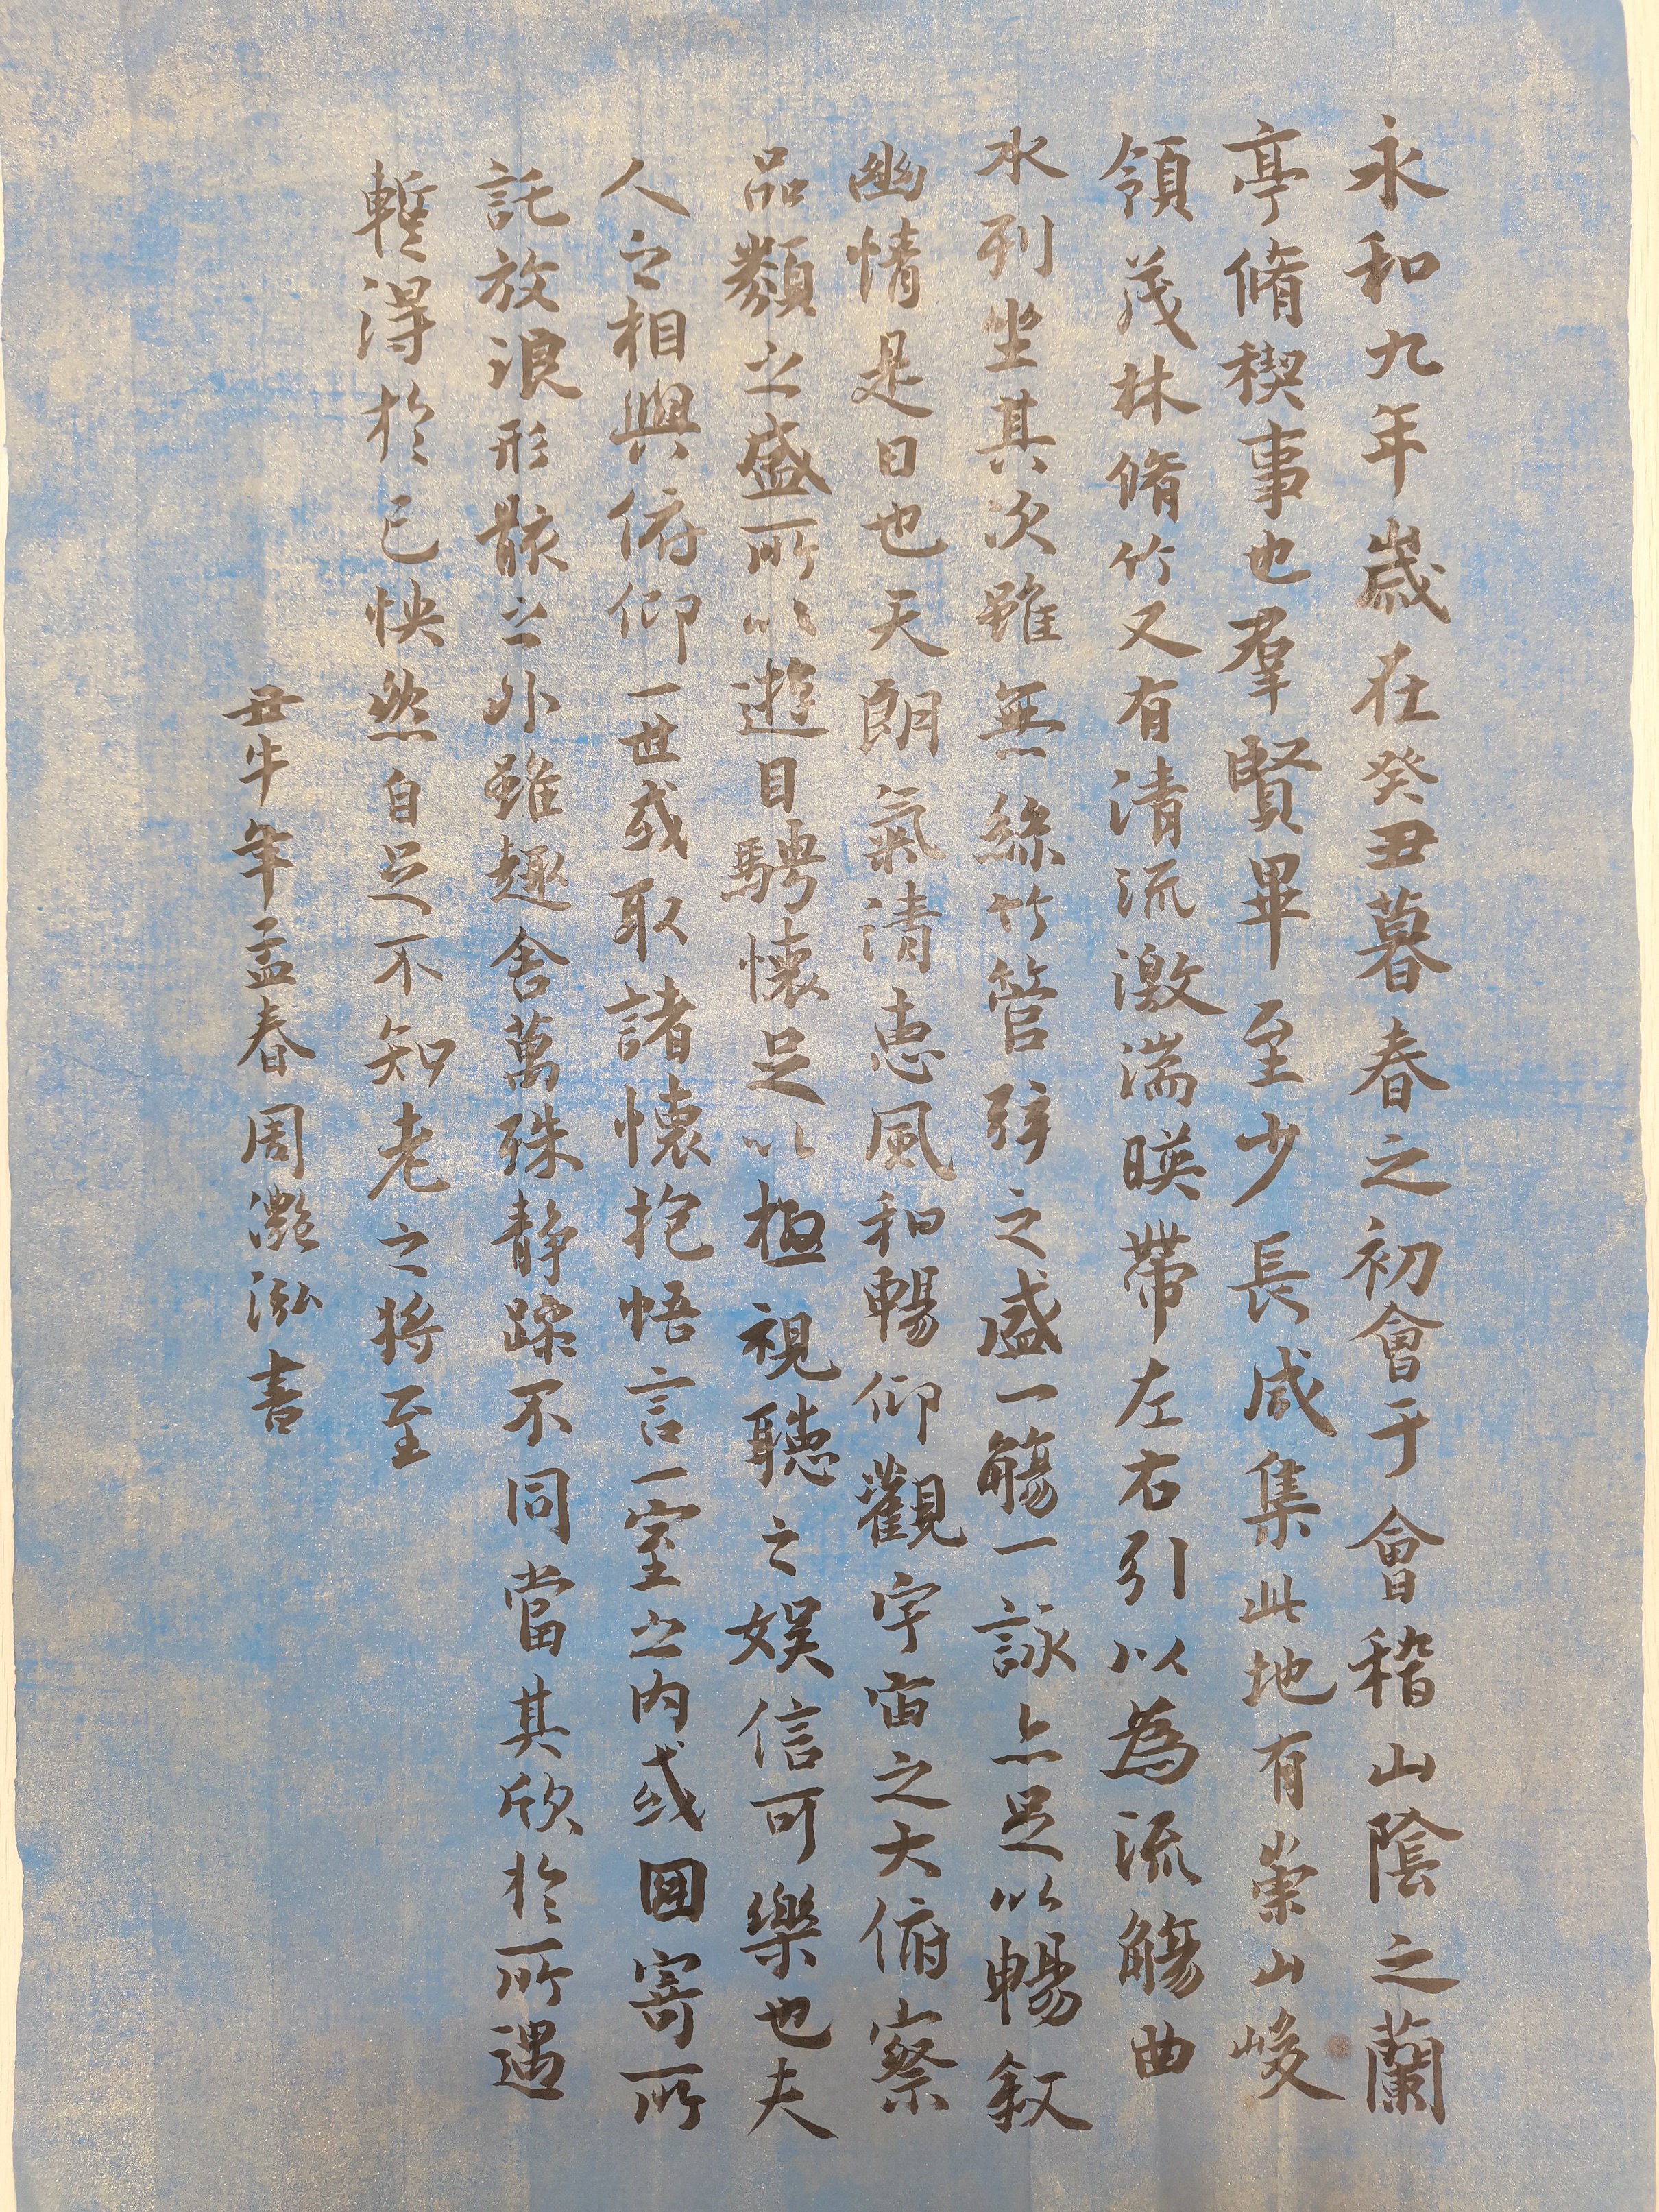 永和九年歲在癸丑暮春之初會于會稽山陰之蘭
亭脩稧事也羣賢畢至少長咸集此地有崇山峻
領茂林脩竹又有清流激湍暎帶左右引以為流觴曲
水列坐其次雖無絲竹管弦之盛一觴一詠亦足以暢叙
幽情是日也天朗氣清惠風和暢仰觀宇宙之大俯察
品類之盛所以遊目騁懷足以極視聽之娱信可樂也夫
人之相與俯仰一世或取諸懷抱悟言一室之内或因寄所
託放浪形骸之外雖趣舍萬殊静躁不同當其欣於所遇
暫得於己怏然自足不知老之将至
丑牛年孟春周灔泓書